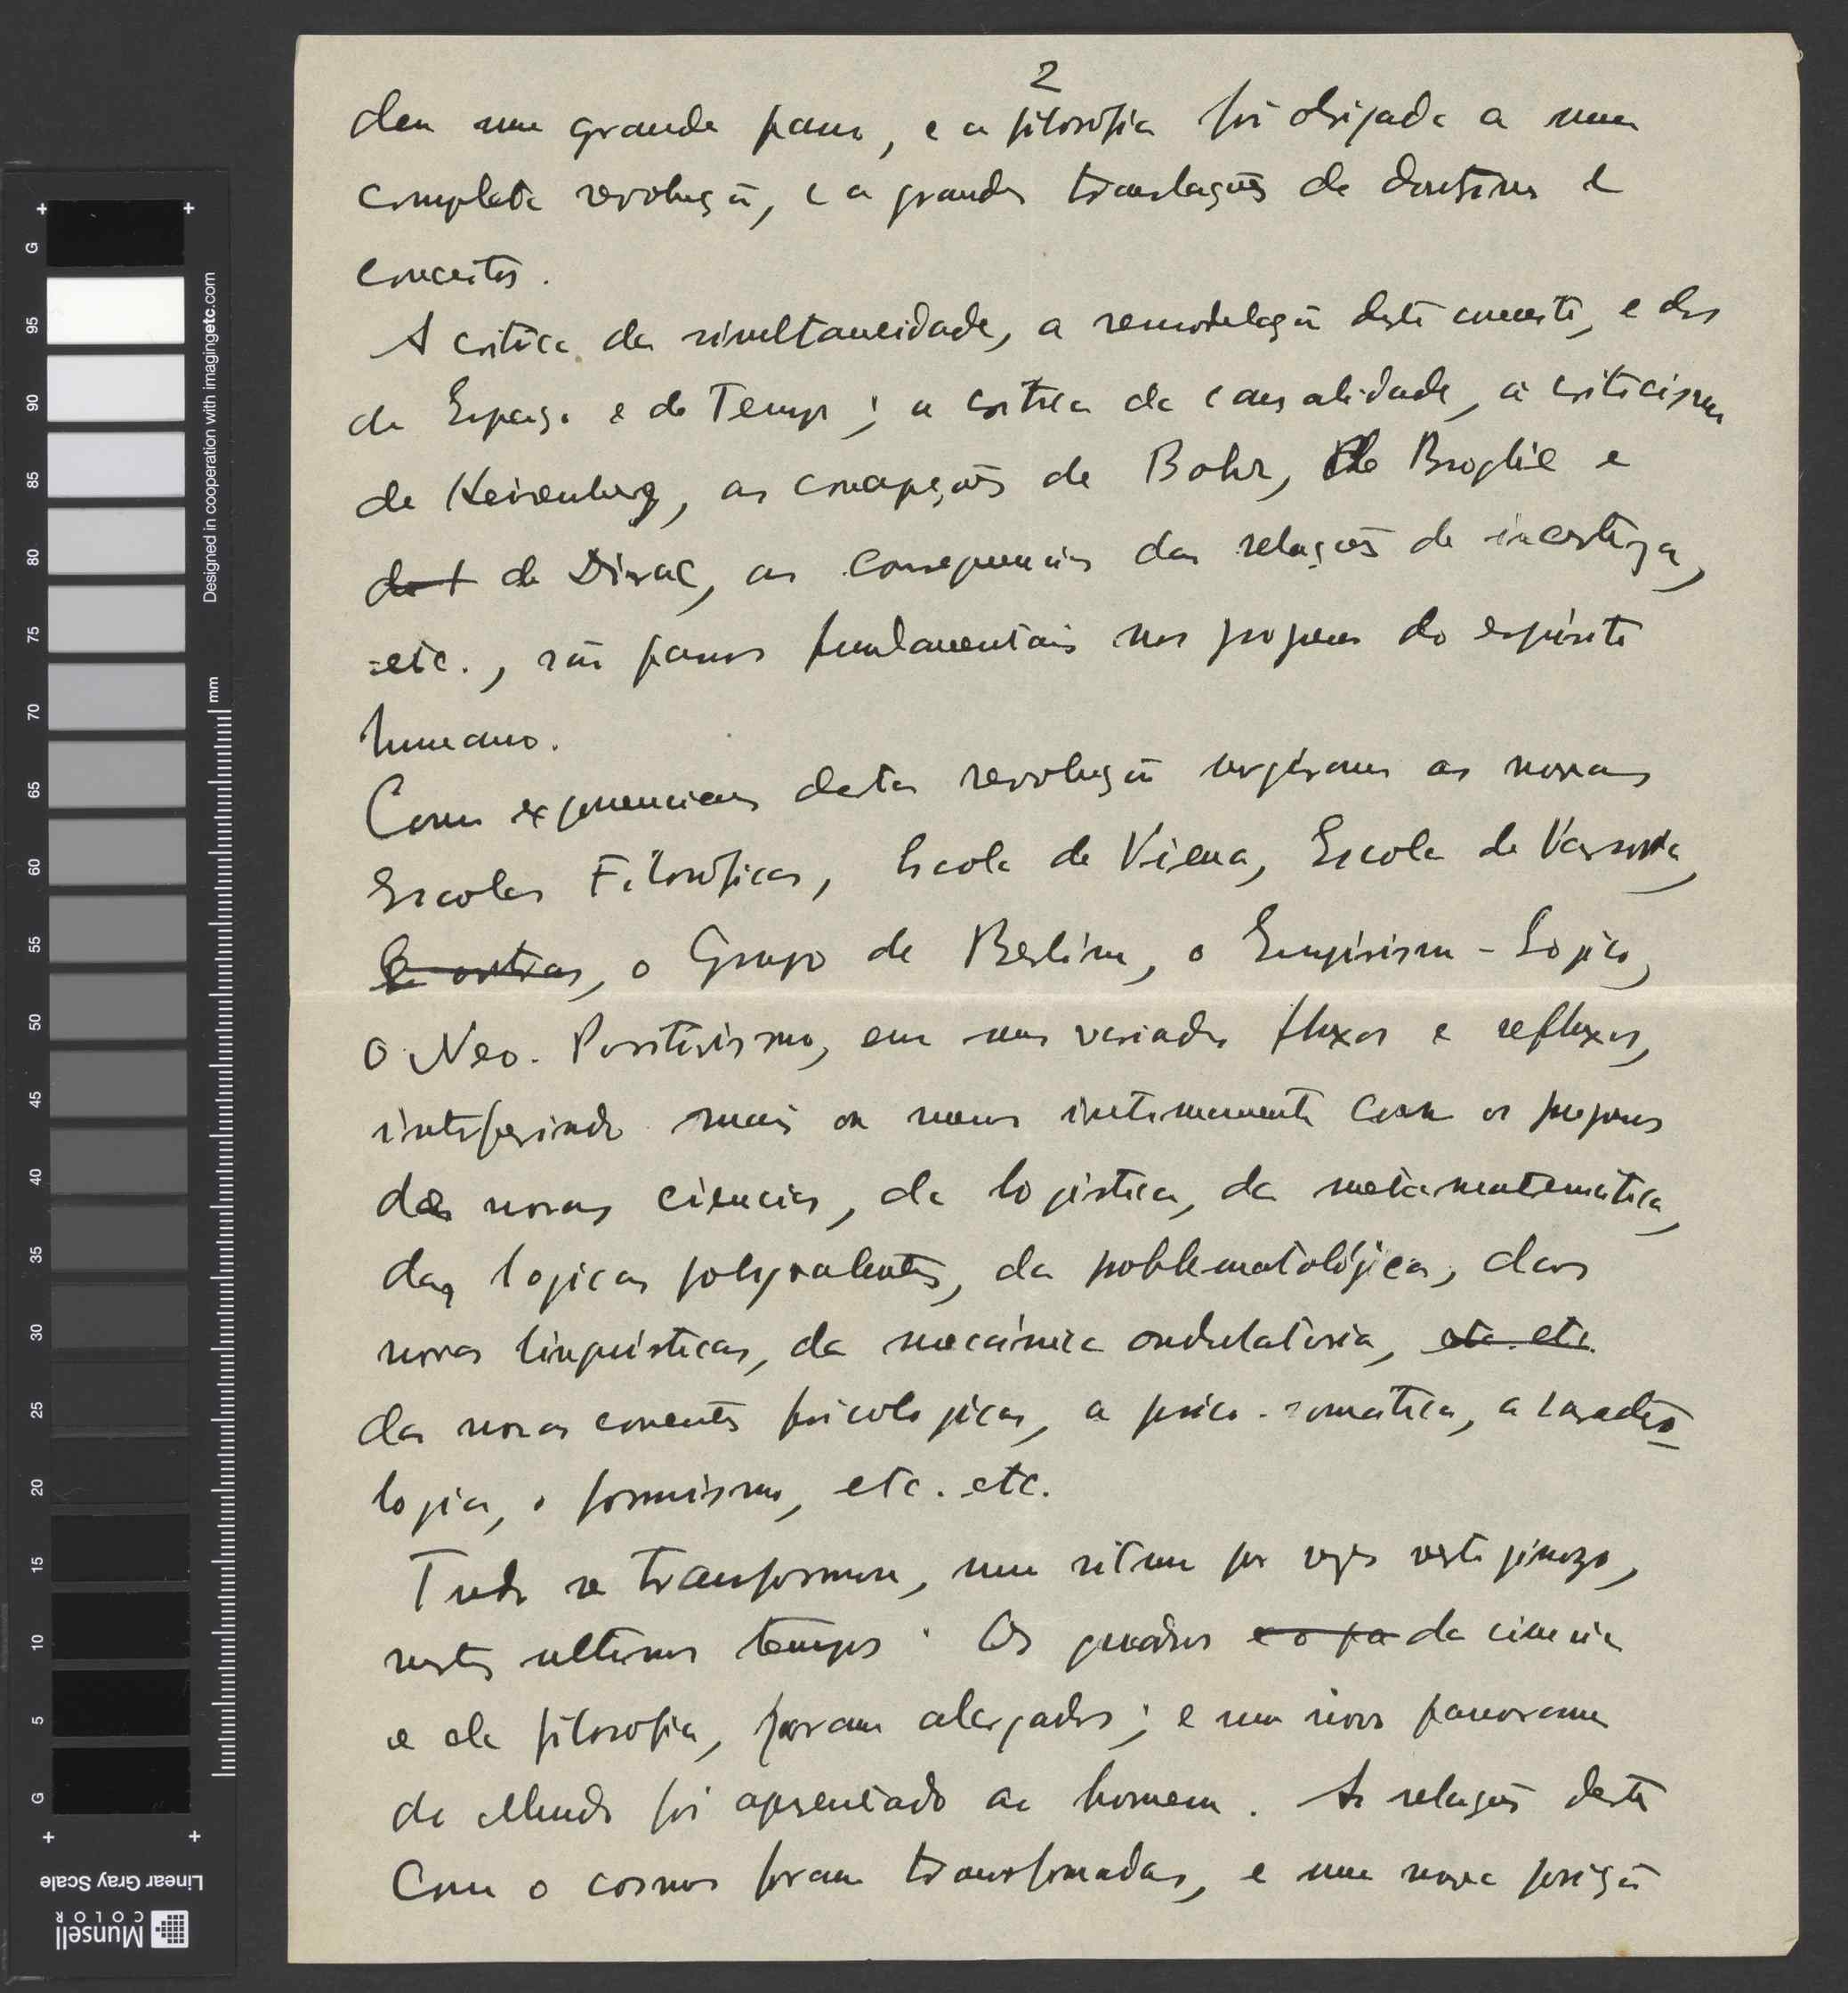 2
deu um grande passo, e a filosofia foi obrigada a uma
completa revolução, e a grandes translações de doutrinas e
conceitos.
A critica da simultaneidade, a remodelação deste conceito, e dos
de Espaço e do Tempo; a critica da causalidade, o criticismo
de Heisenberg, as concepções de Bohr, de Broglie e
de Dirac, as consequencias das relações de incerteza,
etc., são passos fundamentais nos progressos do espirito
humano.
Como exponenciaes desta revolução surgiram as novas
Escolas Filosóficas, Escola de Viena, Escola de Varsovia,
E outras, o Grupo de Berlim, o Empirismo-Logico,
O Neo-Positivismo, em seus variados fluxos e refluxos,
interferindo mais ou menos intimamente com os progressos
das novas ciencias, da logistica, da metamatematica,
das logicas polyvalentes, da problematológica, das
novas linguisticas, da mecânica ondulatoria, etc. etc.
das novas correntes psicologicas, a psico-somática, a caracterologia, o formismo, etc. etc.
Tudo se transformou, num ritmo por vezes vertiginozo,
nestes ultimos tempos. Os quadros e o pa da ciencia
e da filosofia, foram alargados; e um novo panorama
do Mundo foi apresentado ao homem. As relações deste
Com o cosmos foram transformadas, e uma nova posição
G 95 90 85 80 75 70 65 60 55 50 45 40 35 30 25 20 15 10 5 G
mm
Designed in cooperation with imagingetc.com
Linear Gray Scale
Munsell
COLOR